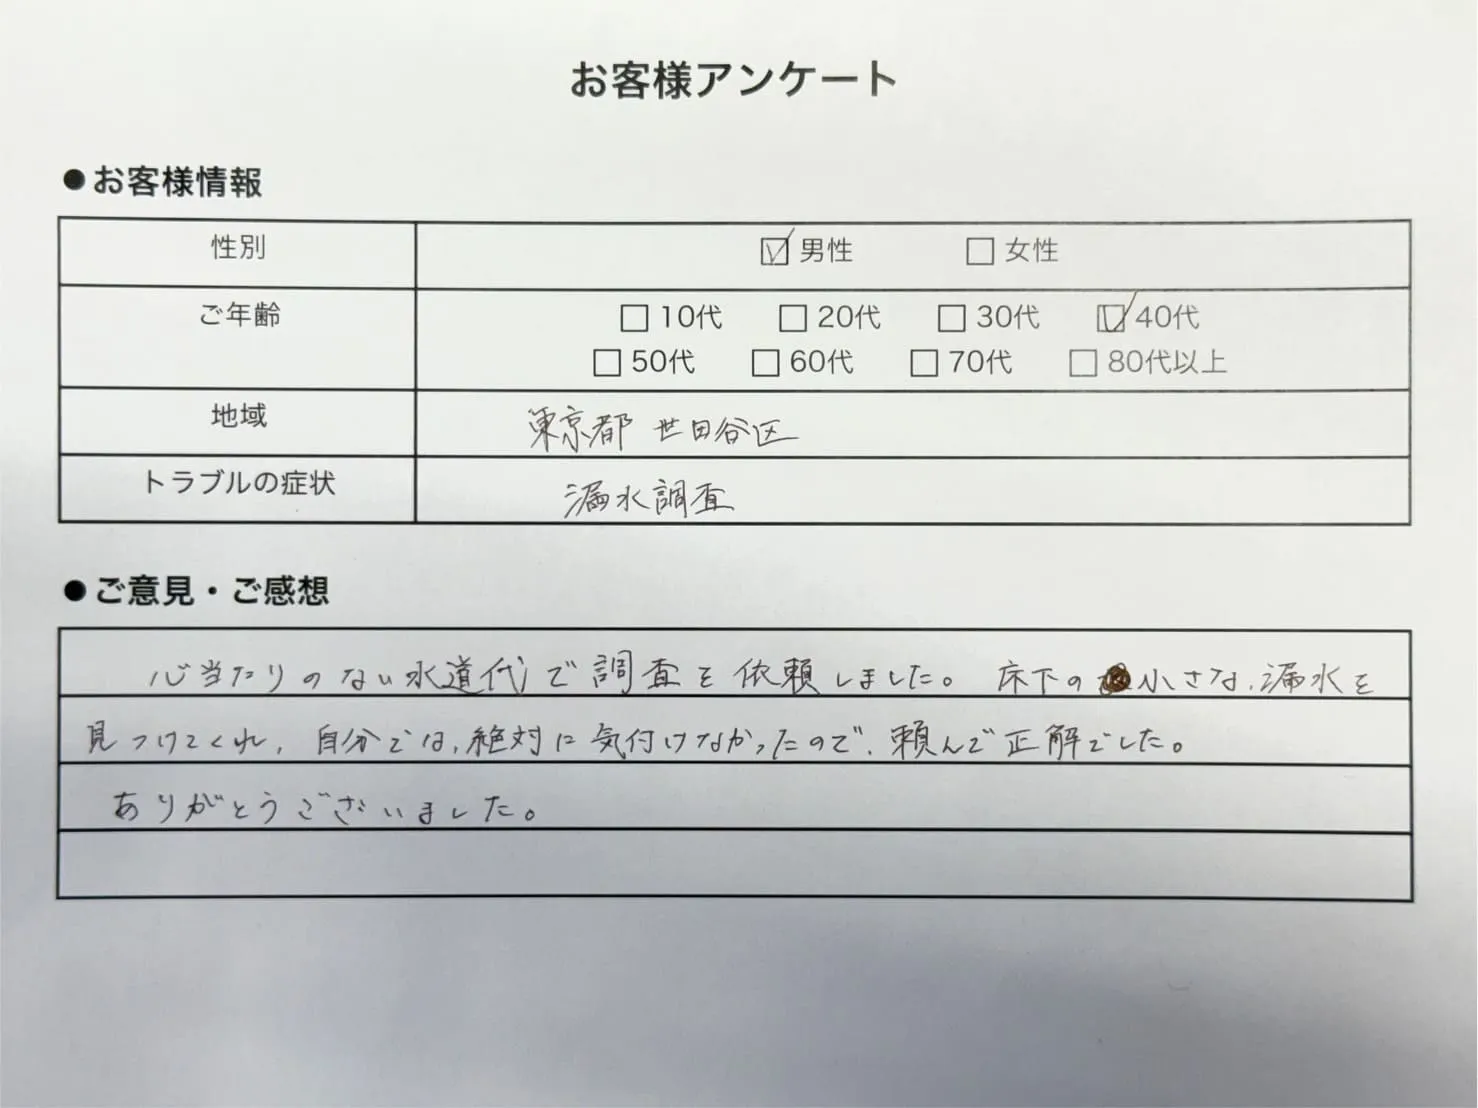 お客様アンケート
●お客様情報
性別 ☑男性 □女性
ご年齢 □10代 □20代 □30代 ☑40代
□50代 □60代 □70代 □80代以上
地域 東京都 世田谷区
トラブルの症状 漏水調査
●ご意見・ご感想
心当たりのない水道代で調査を依頼しました。床下の小さな、漏水を
見つけてくれ、自分では、絶対に気付けなかったので、頼んで正解でした。
ありがとうございました。